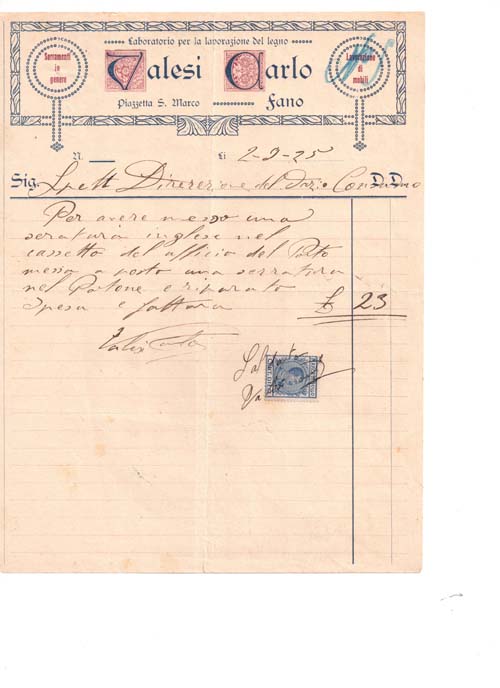 Laboratorio per la lavorazione del legno
Serramenti in genere
Valesi Carlo
Lavorazione di mobili
Piazzetta S. Marco Fano
N. Li 2-9-25
Sig. Spett Direzione del Dazio Consumo
Per avere messo una
seratura inglese nel
cassetto del afficio del Porto
messo a posto una serratura
nel Portone e riparato
Spesa e fattura £ 23
Valesi Carlo
Saldato